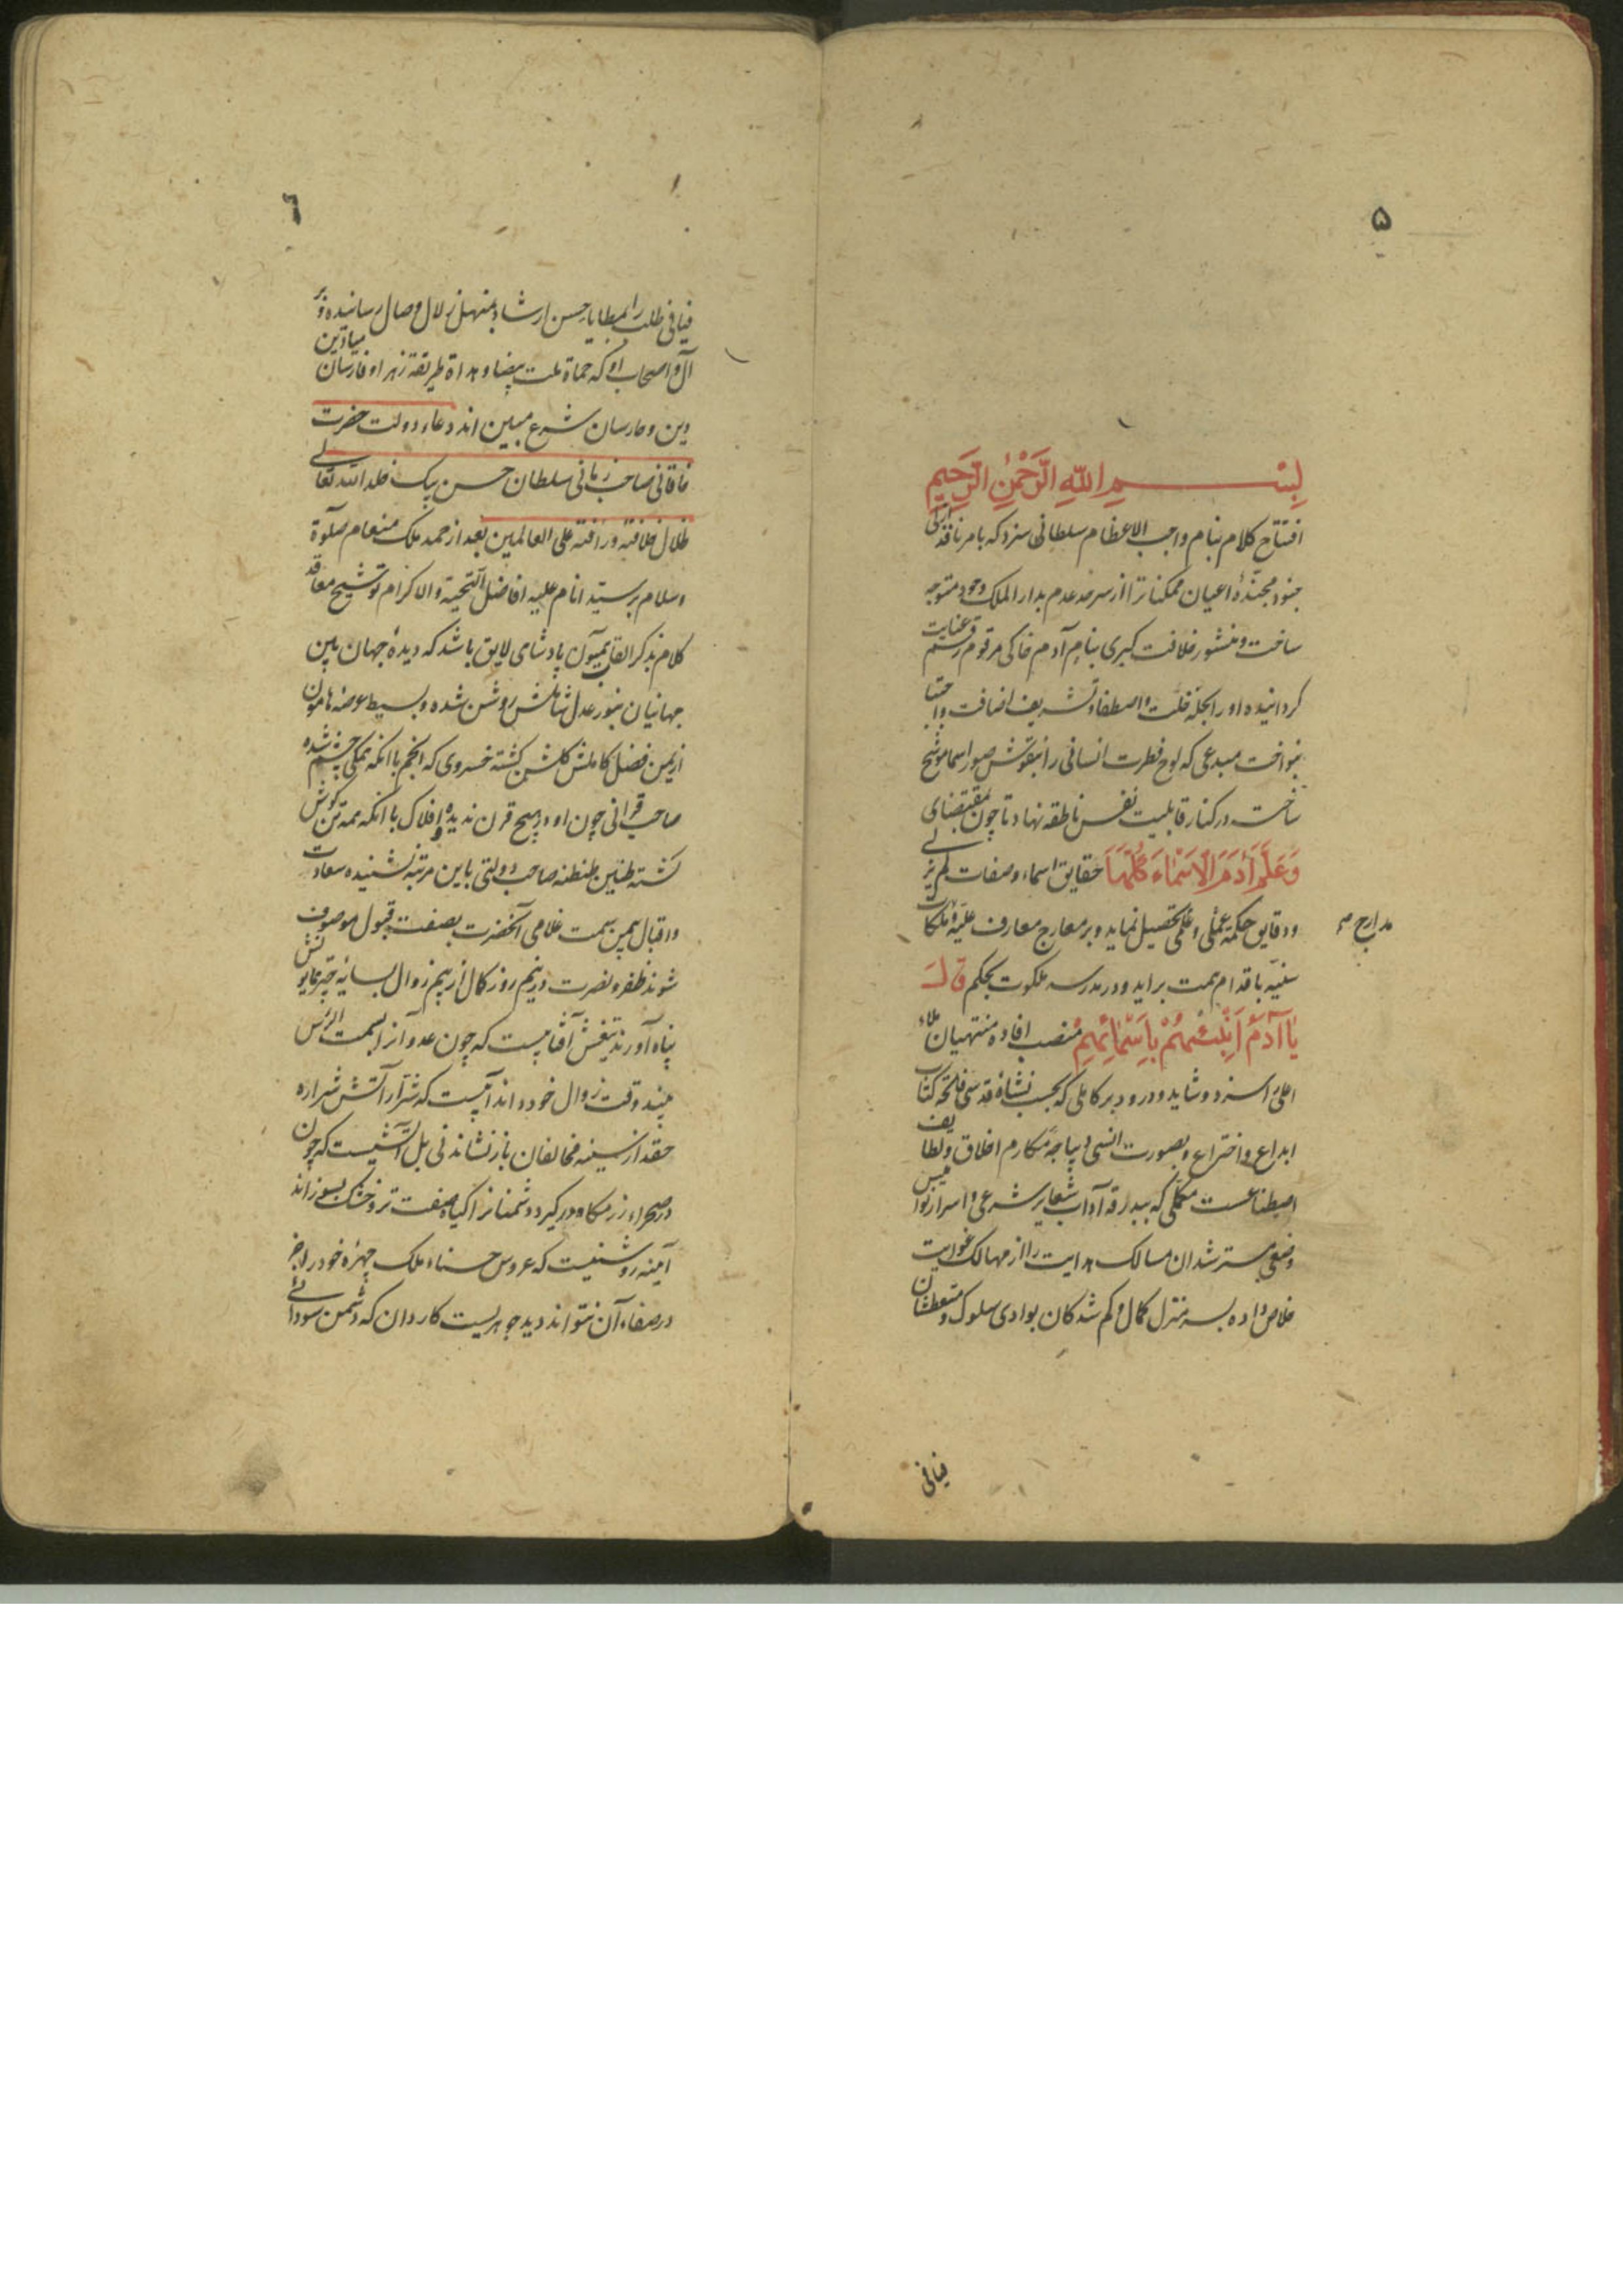 ۵
بِسْمِ اللّٰهِ الرَّحْمٰنِ الرَّحِيمِ
افتتاح کلام بنام واجب الاعظام سلطانی سزد که بامر نافذ
جنود مجنّدهٔ اعیان ممکناترا از سرحد عدم بدار الملک وجود متوجه
ساخت و منشور خلافت کبری بنام آدم خاکی مرقوم رقم عنایت
کردانیده او را بحلهٔ خلّت و اصطفا و تشریف اضافت و اجتبا
بنواخت مبدعی که لوح فطرت انسانی را بنقوش صور اسما موشح
ساخت در کنار قابلیت نفس ناطقه نهاد تا چون بمقتضای
وَعَلَّمَ آدَمَ الْاَسْمَاءَ كُلَّهَا حقایق اسماء و صفات
و دقایق حکمة عملی و علمی تحصیل نماید و بر معارج معارف علیّه و ملکات
مدارج
سنیّه باقدام همت براید و در مدرسه ملکوت بحکم قَالَ
يَا آدَمُ اَنْبِئْهُمْ بِاَسْمَائِهِمْ منصب افاده منتهیان ملاء
اعلی را سزد و شاید و درود بر کاملی که بحسب نشاءهٔ قدسی فاتحهٔ کتاب
ابداع و اختراع و بصورت انسی دیباجهٔ مکارم اخلاق و لطایف
اصطناعست مکملی که ببدرقه آداب شعایر شرعی و اسرار نوامیس
وضعی مسترشدان مسالک هدایت را از مهالک غوایت
خلاص داده بسر منزل کمال و کم شدکان بوادی سلوک و متعطشان
فیافی
٦
فیافی طلب را بمطایا حسن ارشاد بمنهل زلال وصال رسانیده و بر
آل و اصحاب او که حماة ملت بیضا و هداة طریقة زهرا و فارسان میادین
دین و حارسان شرع مبین اند دعاء دولت حضرت
خاقانی صاحب زمانی سلطان حسن بیک خلد الله تعالی
ظلال خلافته و رافته علی العالمین بعد از حمد ملک منعام و صلوة
و سلام بر سیّد انام علیه افاضل التحیّة والاکرام توشیح معاقد
کلام بذکر القاب همیون پادشاهی لایق باشد که دیدهٔ جهان بین
جهانیان بنور عدل شاملش روشن شده و بسیط عرصه هامون
از یمن فضل کاملش کلشن کشته خسروی که انجم با انکه همکی چشم شده
صاحب قرانی چون او در هیچ قرن ندیده و افلاک با انکه همه تن کوش
کشته طنین طنطنه صاحب دولتی باین مرتبه نشنیده سعادت
و اقبال بهمین سمت غلامی آنحضرت بصفت قبول موصوف
شوند ظفر و نصرت در نیم روز کمال از بیم زوال بسایهٔ چتر همایونش
پناه آورند تیغش آفتابیست که چون عدو آنرا بسمت الرأس
بیند وقت زوال خود داند آبیست که شرار آتش شراره
حقد از سینه مخالفان باز نشاند نی بل آتشیست که چون
در صحراء رزمکاه در کیرد دشمنانرا کیاه صفت تر و خشک بسوزاند
آینه روشنیست که عروس حسناء ملک چهرهٔ خود را جز
در صفاء آن نتواند دید جوهریست کاردان که دشمن سودائی